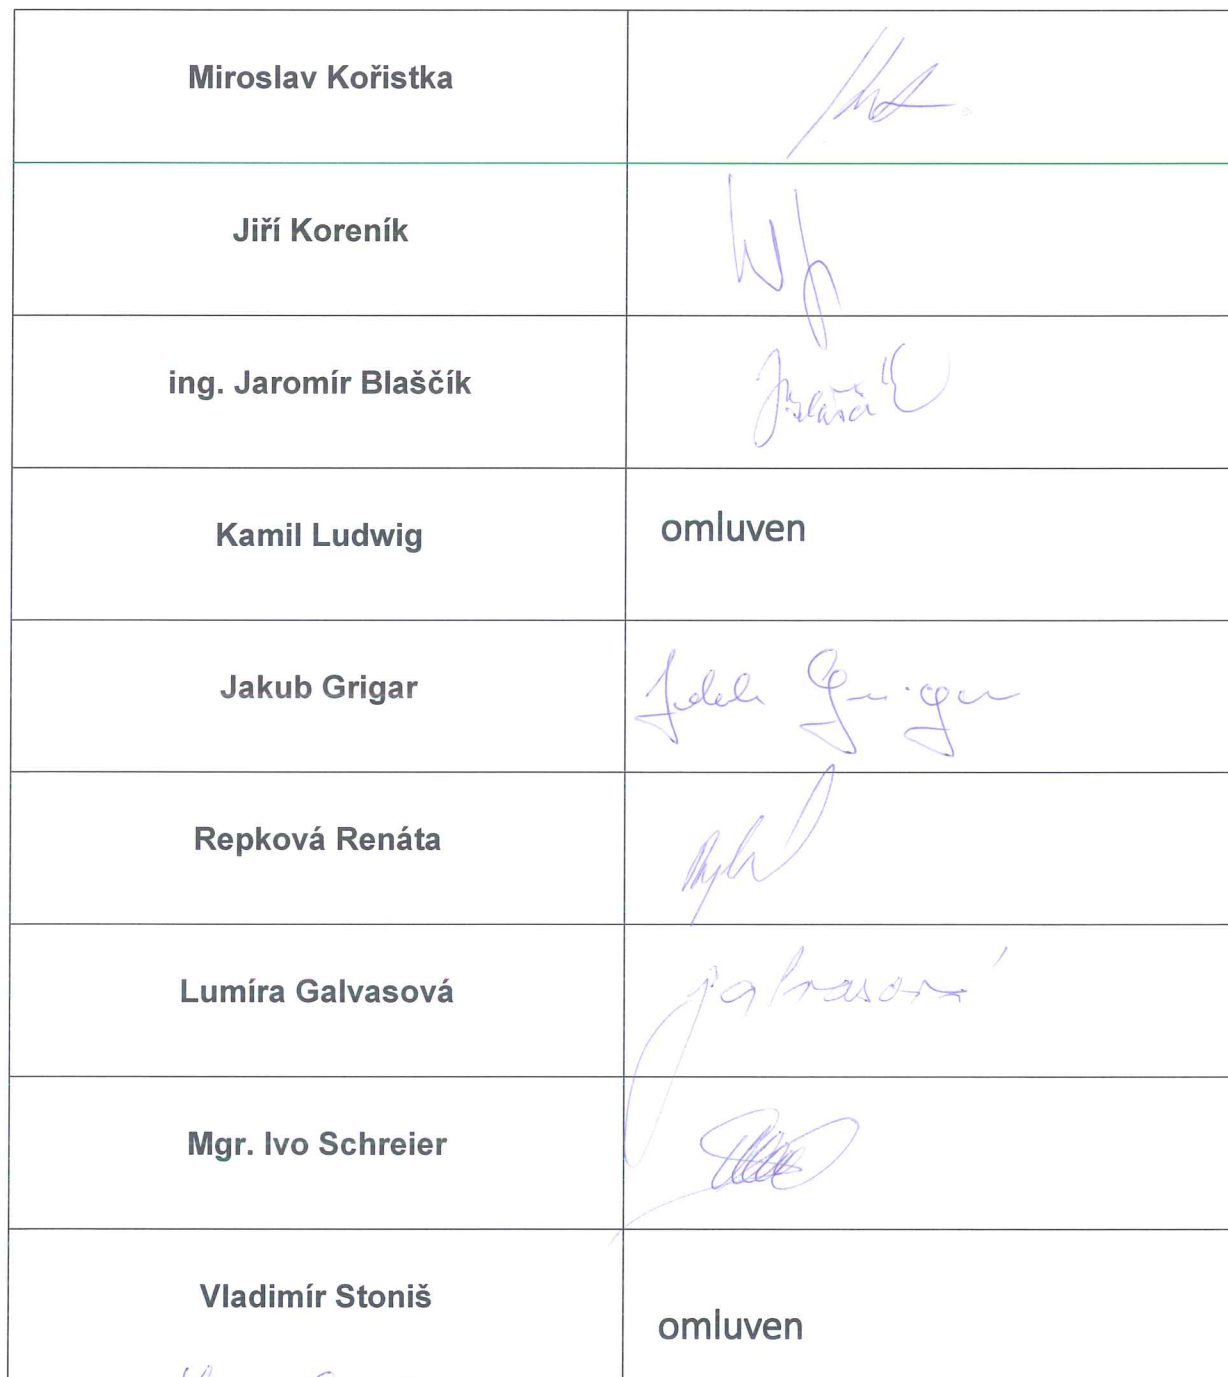 Miroslav Kořistka
Jiří Koreník
ing. Jaromír Blaščík
Blaščík
Kamil Ludwig omluven
Jakub Grigar
Jakub Grigar
Repková Renáta
Lumíra Galvasová
galvasová
Mgr. Ivo Schreier
Vladimír Stoniš
omluven